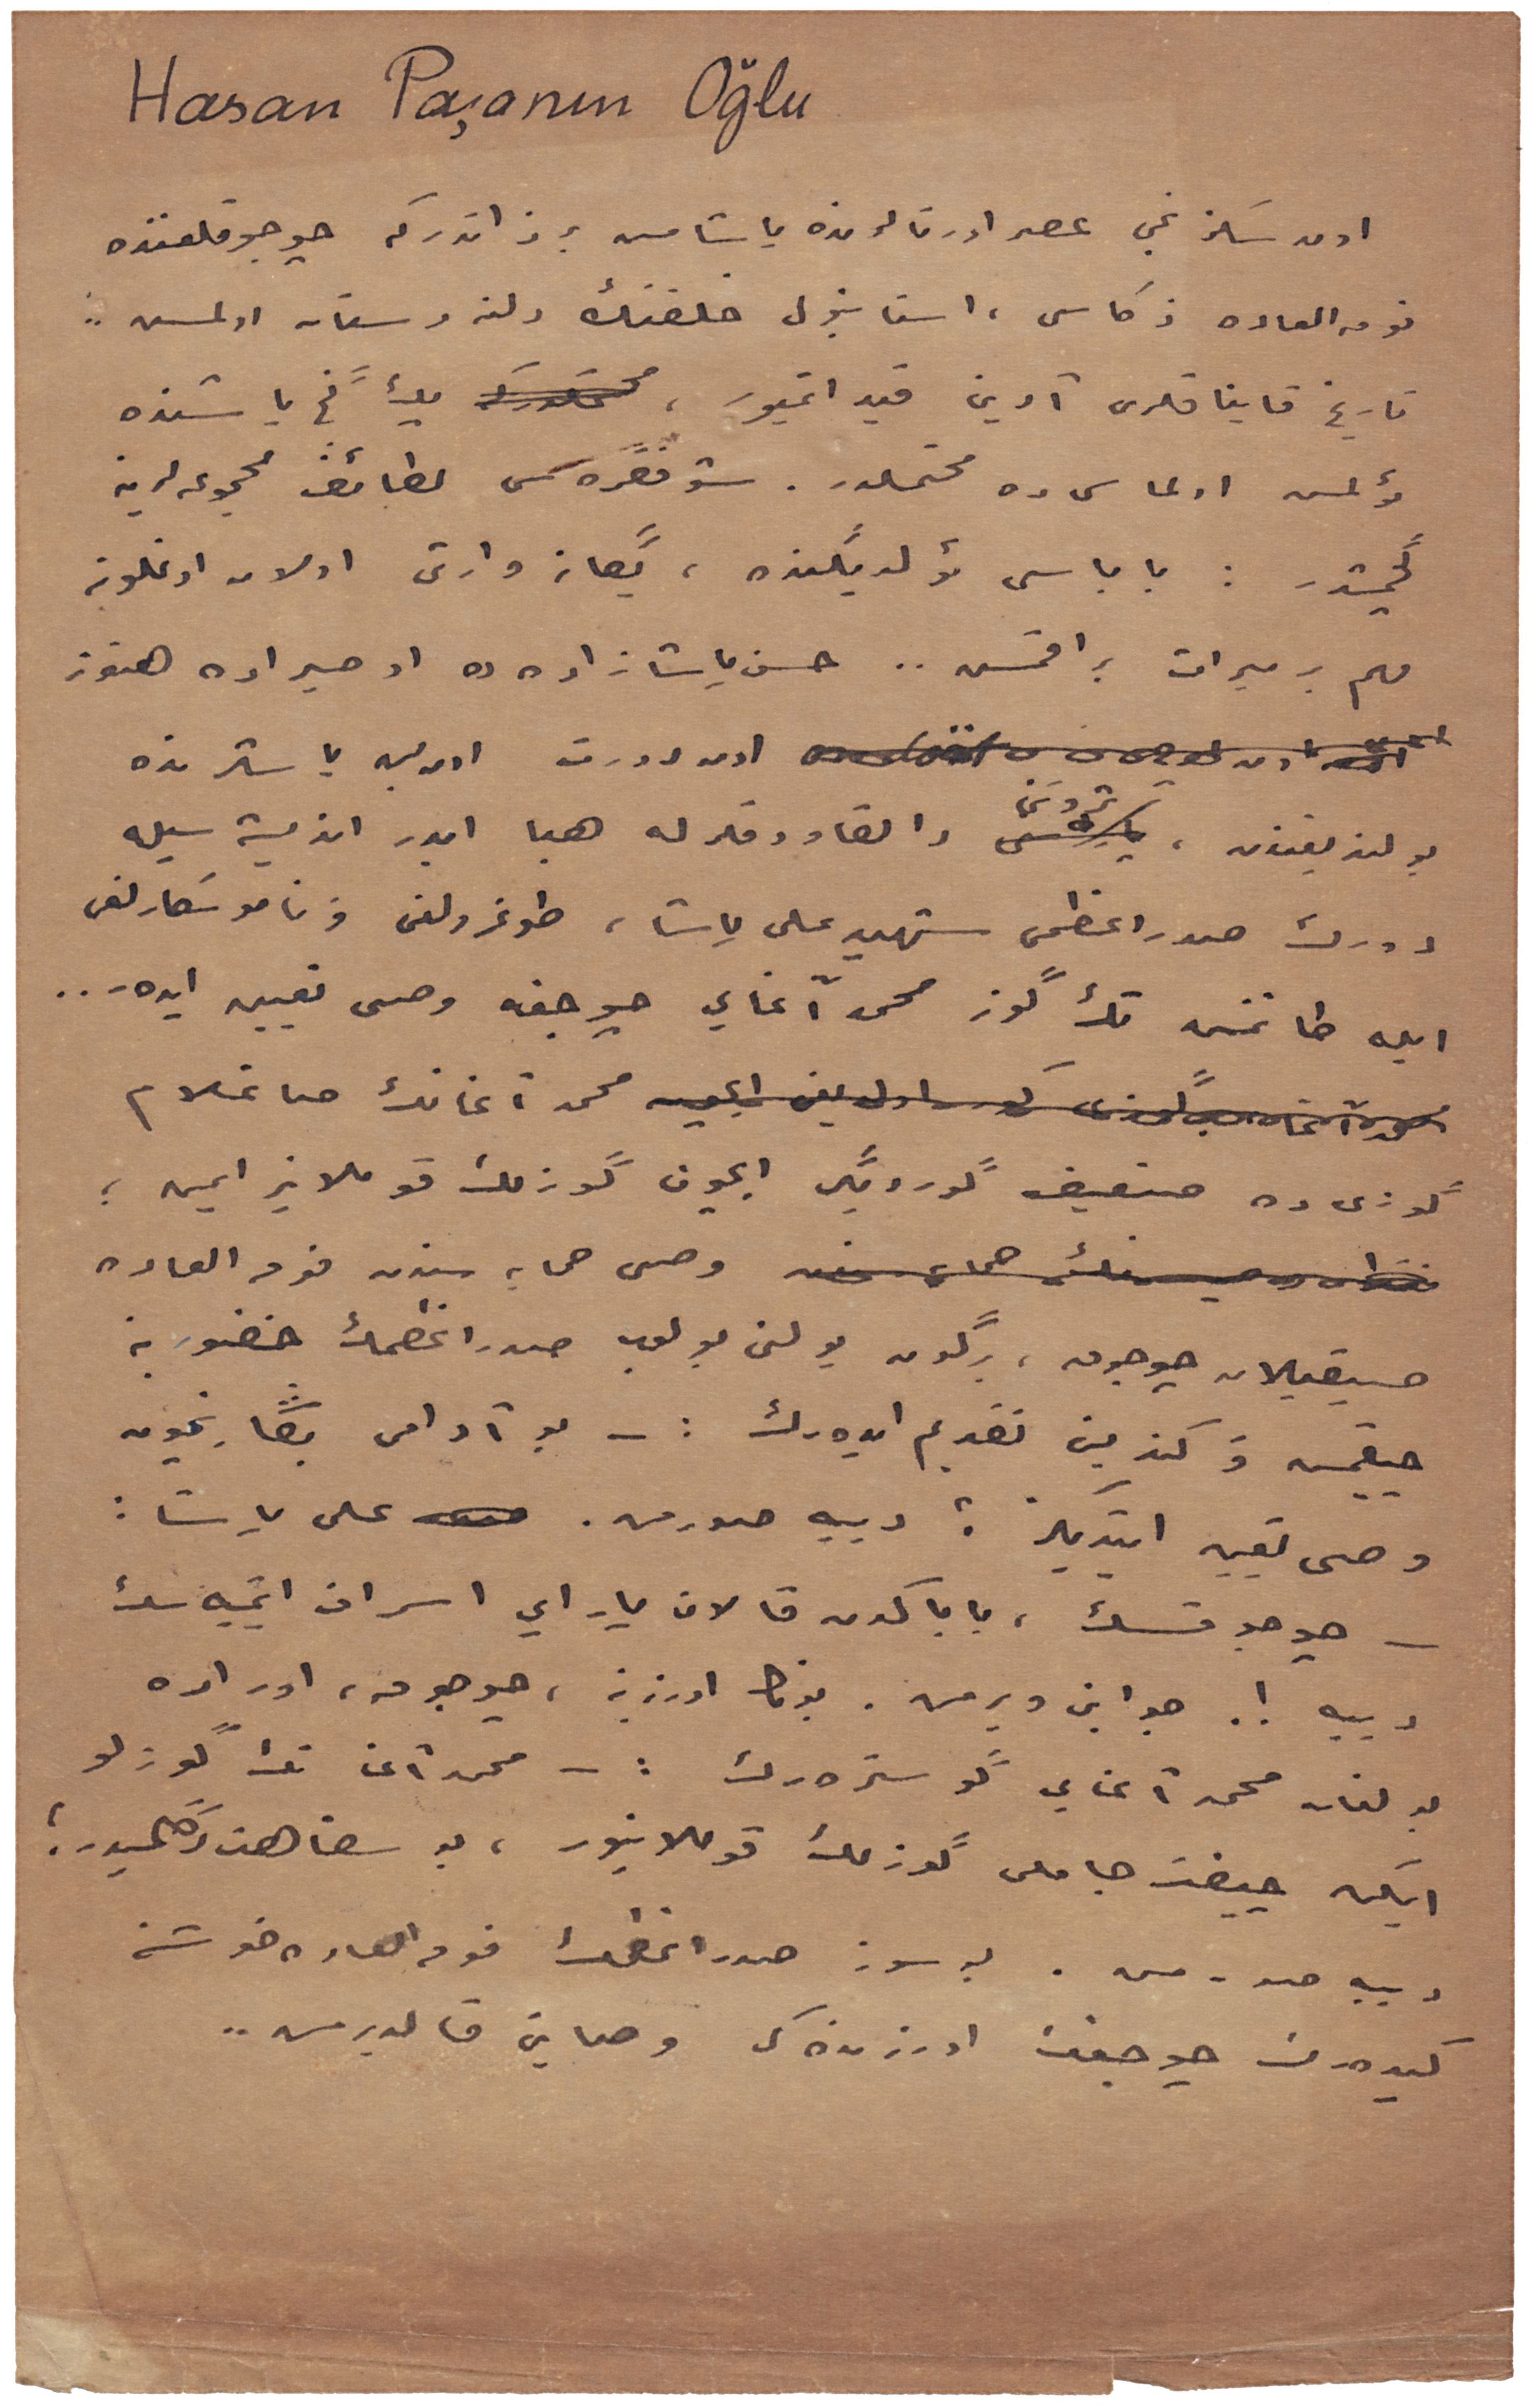 Hasan Paşanın Oğlu
اون سکزنجی عصر اورتالرنده یاشامش بر ذاتدرکه چوجوقلغنده
فوق العاده ذکاسی ، استانبول خلقنك دلنه دستان اولمش ..
تاریخ قایناقلری آدینی قید اتمیور ، محتملدرکه پك گنج یاشنده
ئولمش اولماسی ده محتملدر . شو فقره سی لطائف مجموعه لرینه
گچمشدر : باباسی ئولدیگنده ، یگانه وارثی اولان اوغلونه
مهم بر میراث براقمش .. حسن پاشا زاده ده او صیراده هنوز
اون درت اون بش یاشلرنده
بولندیغندن ، ثروتنی دالقاووقلرله هبا ایدر اندیشه سیله
دورك صدراعظمی شهید علی پاشا ، طوغرولغی و ناموسکارلغی
ایله طاننمش تك گوز محمد آغایی چوجغه وصی تعیین ایدر ..
محمد آغانك صاغلام
گوزی ده ضعیف گوردیگی ایچون گوزلك قوللانیر ایمش ؛
وصی حمایه سندن فوق العاده
صیقیلان چوجوق ، برگون یولنی بولوب صدراعظمك حضورینه
چیقمش و کندینی تقدیم ایده رك : ـ بو آدامی بڭا نیچون
وصی تعیین ایتدیڭز ؟ دییه صورمش . علی پاشا :
ـ چوجوقسك ، باباکدن قالان پارایی اسراف ایتمیه سك
دییه !. جوابنی ویرمش . بونڭ اوزرینه ، چوجوق ، اوراده
بولنان محمد آغایی گوستره رك : ـ محمد آغا تك گوزلو
ایکن چیفت جاملی گوزلك قوللانیور ، بو سفاهت دگلمیدر ؟
دییه صورمش . بو سوز صدراعظمك فوق العاده خوشنه
گیده رك چوجغك اوزرنده کی وصایتی قالدیرمش ..